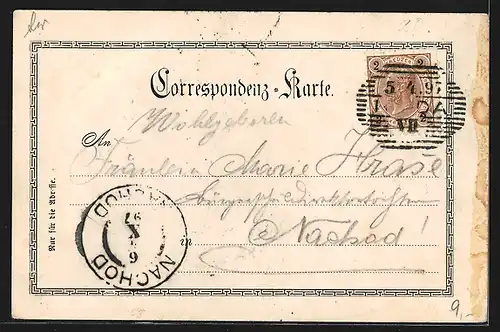 Correspondenz-Karte.
2 KREUZER 2
5 4. 97
VII
Wohlgeboren
An
Fräulein Marie Hraše
in Nachod!
Nur für die Adresse.
NACHOD
6
X
97
NÁCHOD
9,-